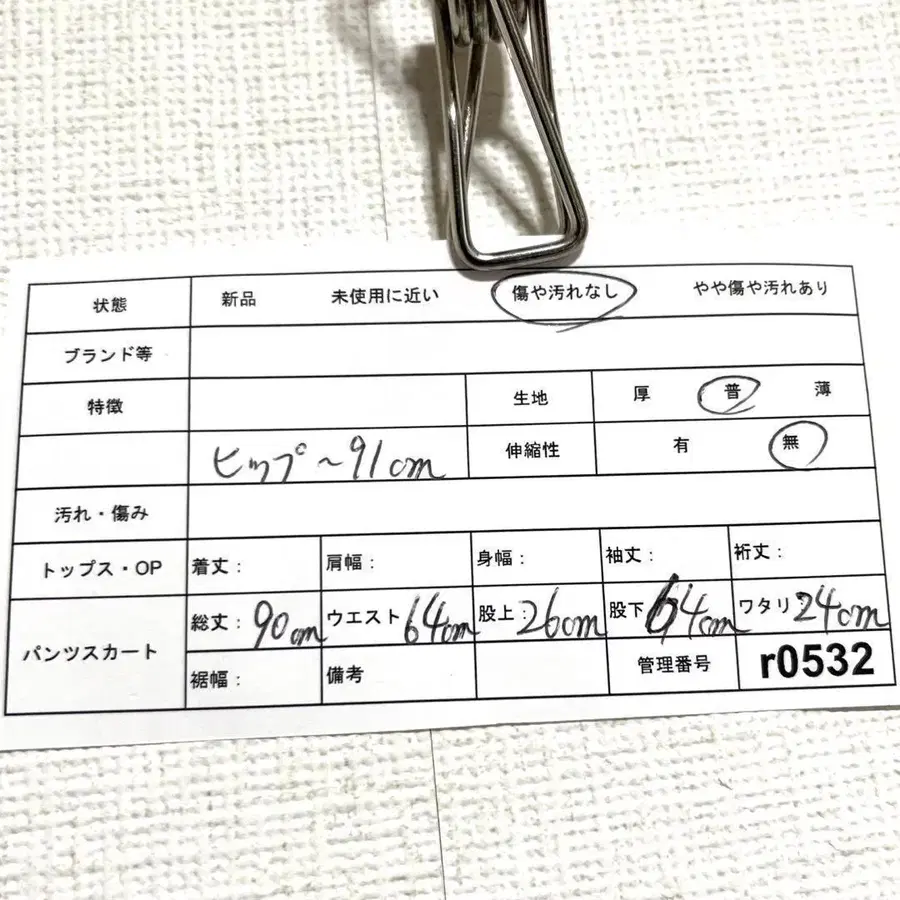 状態 新品 未使用に近い 傷や汚れなし やや傷や汚れあり
ブランド等
特徴 生地 厚 普 薄
ヒップ~91cm 伸縮性 有 無
汚れ・傷み
トップス・OP 着丈: 肩幅: 身幅: 袖丈: 裄丈:
パンツスカート 総丈:90cm ウエスト64cm 股上:26cm 股下64cm ワタリ24cm
裾幅: 備考 管理番号 r0532